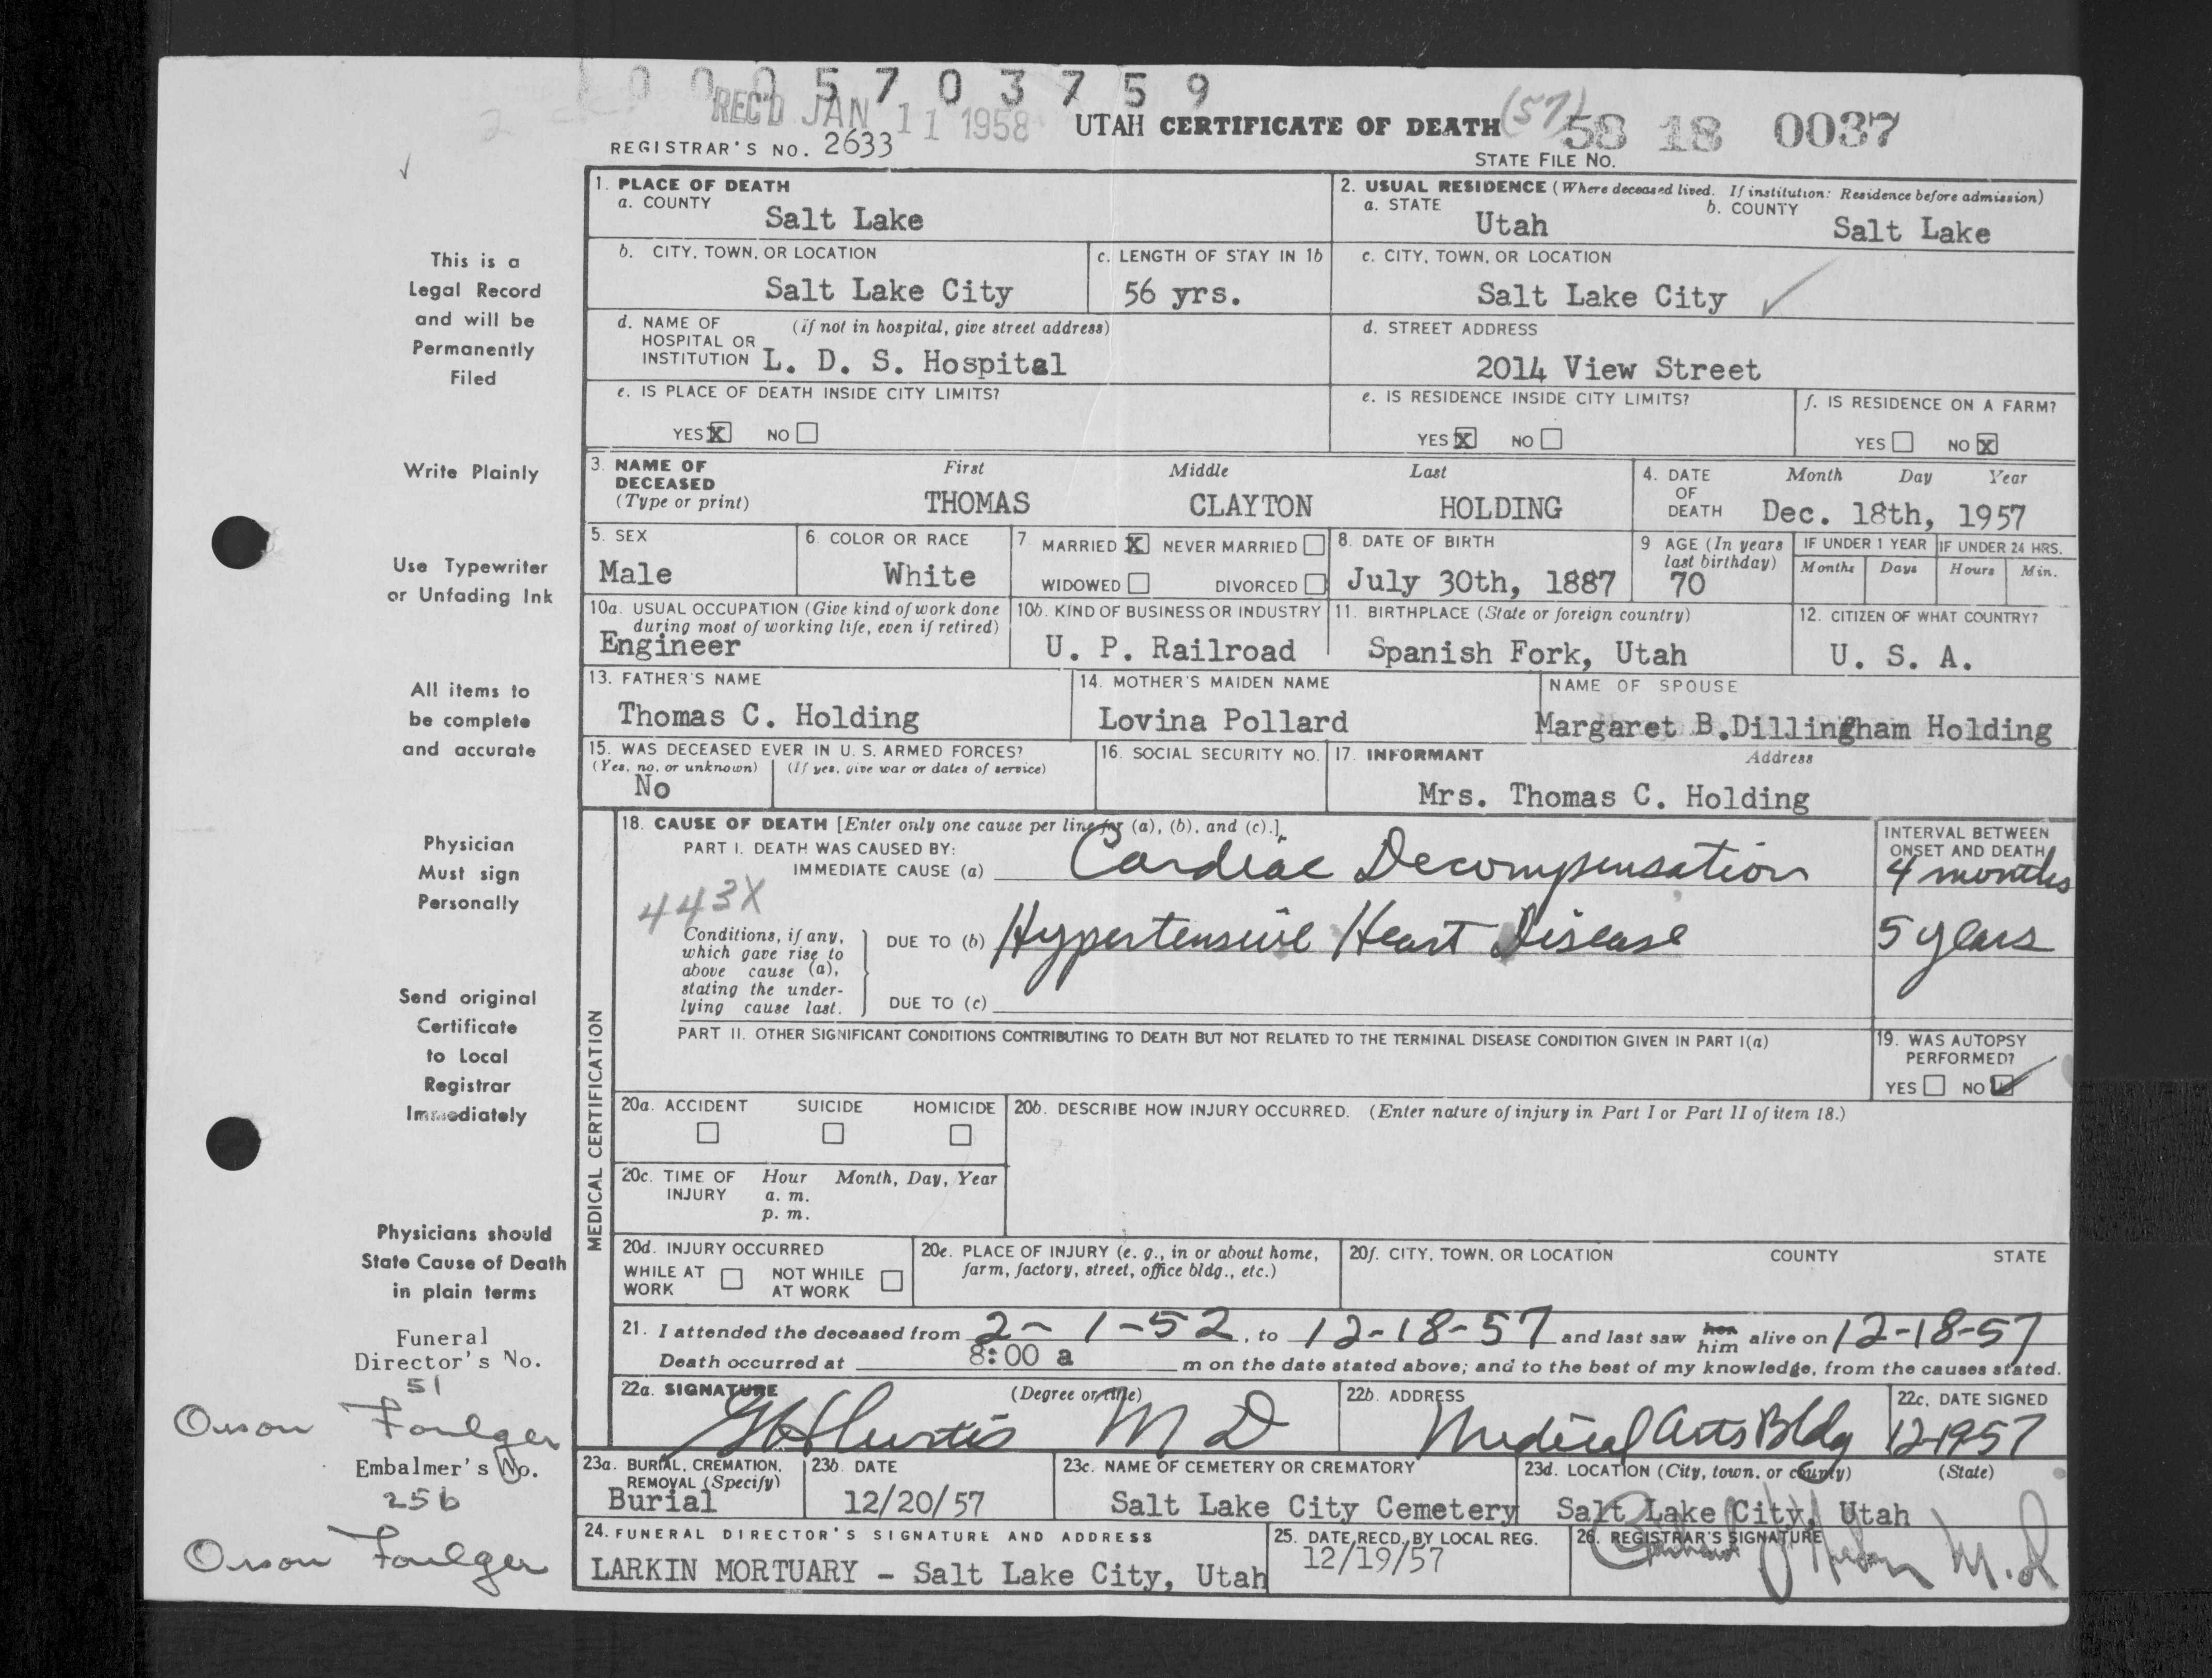 0005703759
REC'D JAN 11 1958
UTAH CERTIFICATE OF DEATH (57) 58 18 0037
REGISTRAR'S NO. 2633
STATE FILE NO.
1. PLACE OF DEATH
a. COUNTY
Salt Lake
2. USUAL RESIDENCE (Where deceased lived. If institution: Residence before admission)
a. STATE
Utah
b. COUNTY
Salt Lake
b. CITY, TOWN, OR LOCATION
Salt Lake City
c. LENGTH OF STAY IN 1b
56 yrs.
c. CITY, TOWN, OR LOCATION
Salt Lake City
d. NAME OF (If not in hospital, give street address)
HOSPITAL OR
INSTITUTION L. D. S. Hospital
d. STREET ADDRESS
2014 View Street
e. IS PLACE OF DEATH INSIDE CITY LIMITS?
YES X NO
e. IS RESIDENCE INSIDE CITY LIMITS?
YES X NO
f. IS RESIDENCE ON A FARM?
YES NO X
3. NAME OF
DECEASED
(Type or print)
First Middle Last
THOMAS CLAYTON HOLDING
4. DATE
OF
DEATH
Month Day Year
Dec. 18th, 1957
5. SEX
Male
6. COLOR OR RACE
White
7. MARRIED X NEVER MARRIED
WIDOWED DIVORCED
8. DATE OF BIRTH
July 30th, 1887
9. AGE (In years
last birthday)
70
IF UNDER 1 YEAR
Months Days
IF UNDER 24 HRS.
Hours Min.
10a. USUAL OCCUPATION (Give kind of work done
during most of working life, even if retired)
Engineer
10b. KIND OF BUSINESS OR INDUSTRY
U. P. Railroad
11. BIRTHPLACE (State or foreign country)
Spanish Fork, Utah
12. CITIZEN OF WHAT COUNTRY?
U. S. A.
13. FATHER'S NAME
Thomas C. Holding
14. MOTHER'S MAIDEN NAME
Lovina Pollard
NAME OF SPOUSE
Margaret B.Dillingham Holding
15. WAS DECEASED EVER IN U. S. ARMED FORCES?
(Yes, no, or unknown) (If yes, give war or dates of service)
No
16. SOCIAL SECURITY NO.
17. INFORMANT Address
Mrs. Thomas C. Holding
MEDICAL CERTIFICATION
18. CAUSE OF DEATH [Enter only one cause per line for (a), (b), and (c).]
PART I. DEATH WAS CAUSED BY:
IMMEDIATE CAUSE (a) Cardiac Decompensation
INTERVAL BETWEEN
ONSET AND DEATH
4 months
443X
Conditions, if any,
which gave rise to
above cause (a),
stating the under-
lying cause last.
DUE TO (b) Hypertensive Heart Disease
5 years
DUE TO (c)
PART II. OTHER SIGNIFICANT CONDITIONS CONTRIBUTING TO DEATH BUT NOT RELATED TO THE TERMINAL DISEASE CONDITION GIVEN IN PART I(a)
19. WAS AUTOPSY
PERFORMED?
YES NO
20a. ACCIDENT SUICIDE HOMICIDE
20b. DESCRIBE HOW INJURY OCCURRED. (Enter nature of injury in Part I or Part II of item 18.)
20c. TIME OF Hour Month, Day, Year
INJURY a. m.
p. m.
20d. INJURY OCCURRED
WHILE AT NOT WHILE
WORK AT WORK
20e. PLACE OF INJURY (e. g., in or about home,
farm, factory, street, office bldg., etc.)
20f. CITY, TOWN, OR LOCATION COUNTY STATE
21. I attended the deceased from 2-1-52, to 12-18-57 and last saw her him alive on 12-18-57
Death occurred at 8:00 a m on the date stated above; and to the best of my knowledge, from the causes stated.
22a. SIGNATURE (Degree or title)
M D
22b. ADDRESS
Medical Arts Bldg
22c. DATE SIGNED
12-19-57
23a. BURIAL, CREMATION,
REMOVAL (Specify)
Burial
23b. DATE
12/20/57
23c. NAME OF CEMETERY OR CREMATORY
Salt Lake City Cemetery
23d. LOCATION (City, town, or county) (State)
Salt Lake City, Utah
24. FUNERAL DIRECTOR'S SIGNATURE AND ADDRESS
LARKIN MORTUARY - Salt Lake City, Utah
25. DATE RECD. BY LOCAL REG.
12/19/57
26. REGISTRAR'S SIGNATURE
M.D
This is a
Legal Record
and will be
Permanently
Filed
Write Plainly
Use Typewriter
or Unfading Ink
All items to
be complete
and accurate
Physician
Must sign
Personally
Send original
Certificate
to Local
Registrar
Immediately
Physicians should
State Cause of Death
in plain terms
Funeral
Director's No.
51
Orson Foulger
Embalmer's No.
256
Orson Foulger